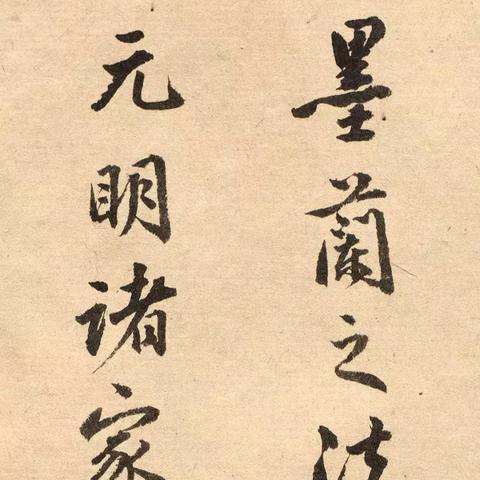 墨蘭之法
元明诸家